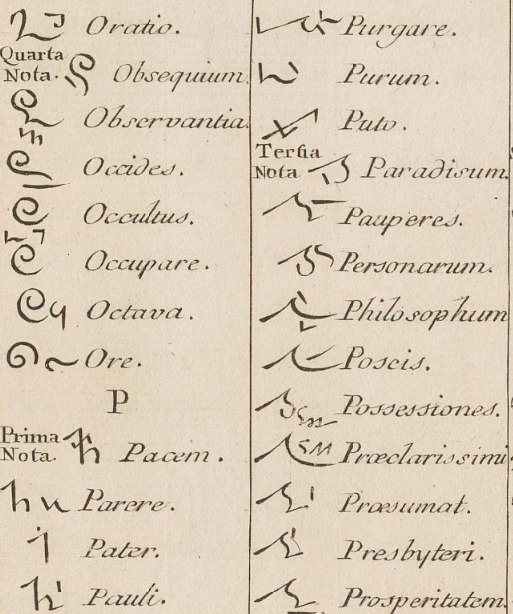 Oratio.
Quarta
Nota. Obsequium.
Observantia
Occides.
Occultus.
Occupare.
Octava.
Ore.
P
Prima
Nota. Pacem.
Parere.
Pater.
Pauli.
Purgare.
Purum.
Puto.
Tertia
Nota Paradisum.
Pauperes.
Personarum.
Philosophum
Poscis.
Possessiones.
Præclarissimi
Præsumat.
Presbyteri.
Prosperitatem.